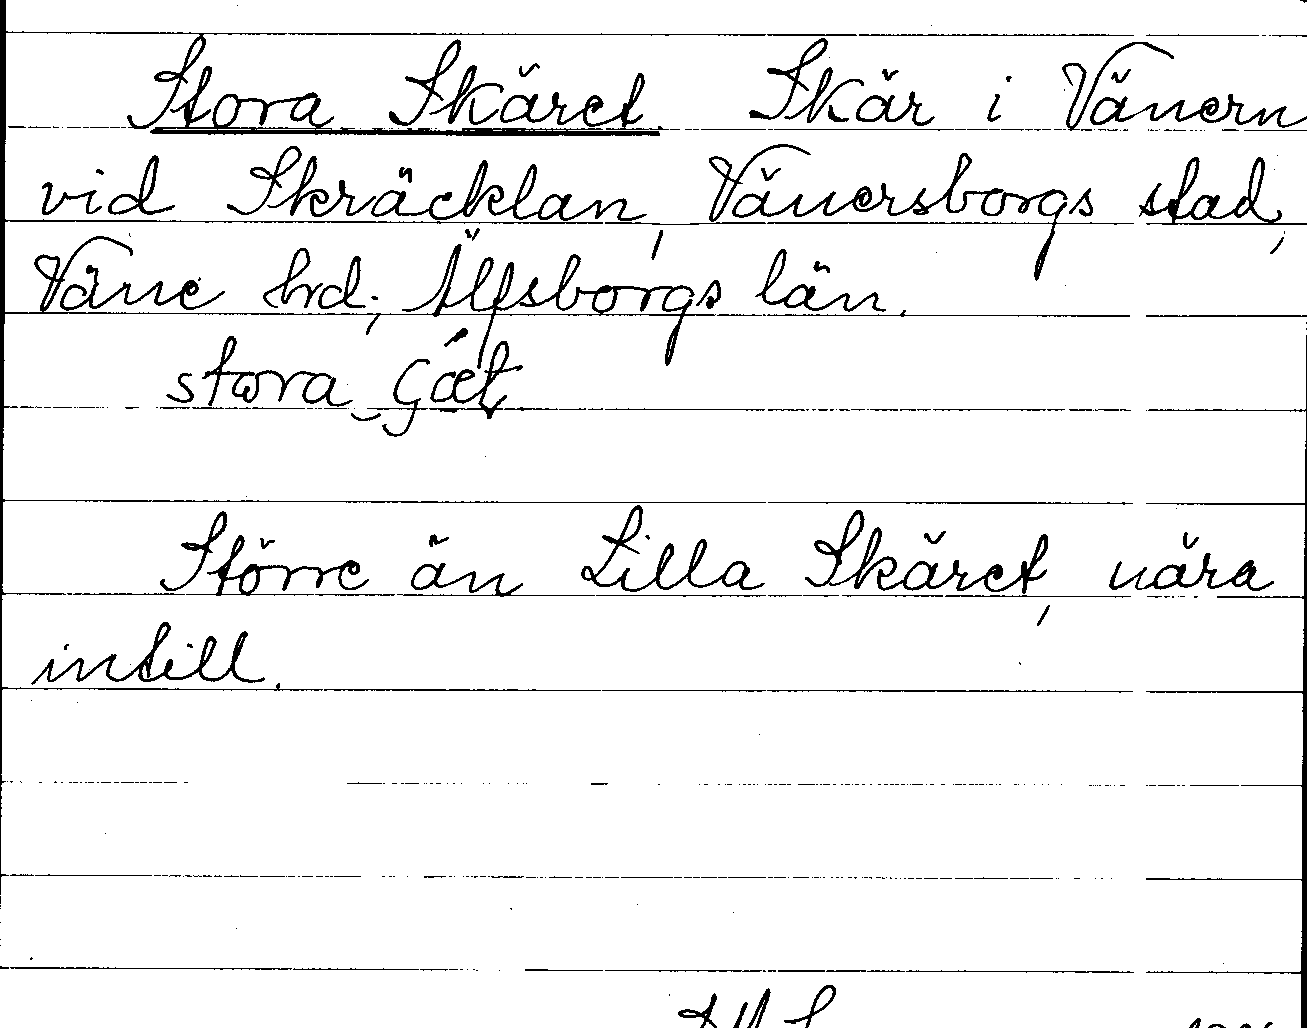 Stora Skäret. Skär i Vänern
vid Skräcklan, Vänersborgs stad,
Väne hd; Älfsborgs län.
stora
Större än Lilla Skäret, nära
intill.